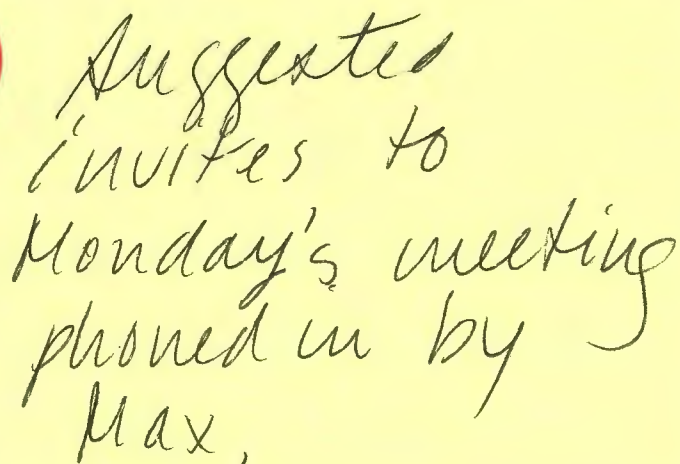 Suggested
invites to
Monday's meeting
phoned in by
Max.